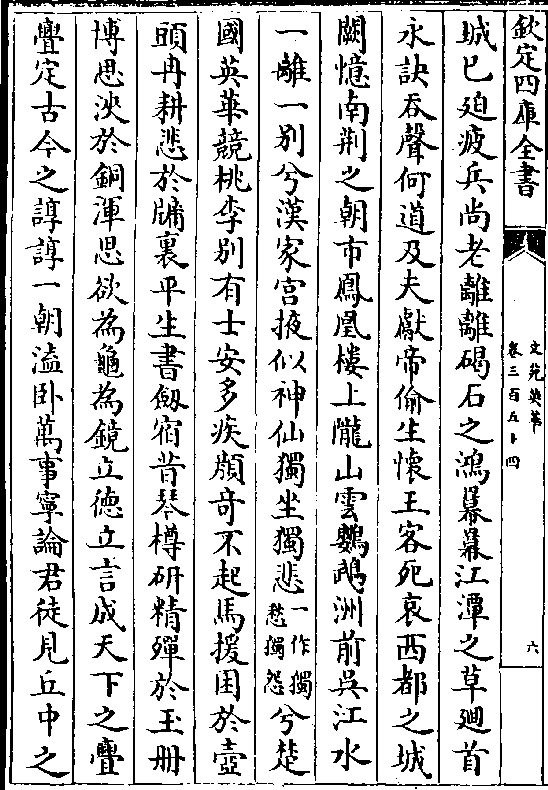 欽定四庫全書
文苑英華
卷三百五十四
六
城已廹疲兵尚老離離碣石之鴻羃羃江潭之草廻首
永訣吞聲何道及夫獻帝偷生懷王客死哀西都之城
闕憶南荆之朝市鳳凰樓上隴山雲鸚鵡洲前吳江水
一離一别兮漢家宫掖似神仙獨坐獨悲一作獨愁獨怨兮楚
國英華競桃李别有士安多疾顔竒不起馬援困於壺
頭冉耕悲於牖裏平生書劒宿昔琴樽研精殫於玉册
博思浹於銅渾思欲為龜為鏡立德立言成天下之亹
亹定古今之諄諄一朝溘卧萬事寧論君徒見丘中之